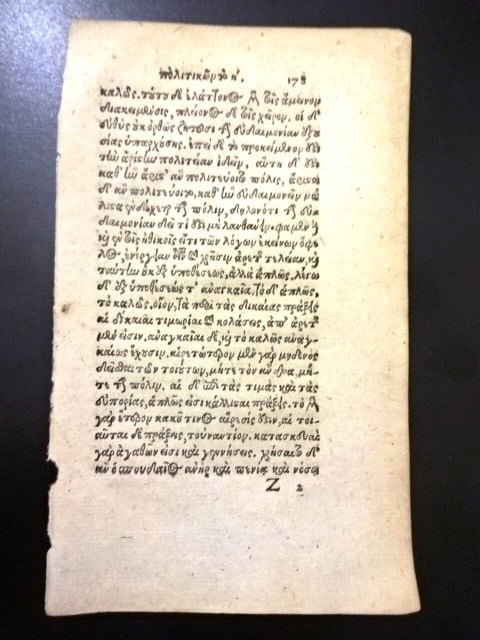 πολιτικῶν τὸ η΄. 178
καλῶς. τοῦτο δ᾽ ἐλάττονος μὲν τοῖς ἄμεινον
διακειμένοις, πλείονος δὲ τοῖς χεῖρον. οἱ δ᾽
εὐθὺς οὐκ ὀρθῶς ζητοῦσι τὴν εὐδαιμονίαν ἐξου
σίας ὑπαρχούσης. ἐπεὶ δὲ τὸ προκείμενον ἐστὶ
τὴν ἀρίστην πολιτείαν ἰδεῖν, αὕτη δ᾽ ἐστὶ
καθ᾽ ἣν ἄριστ᾽ ἂν πολιτεύοιτο πόλις, ἄριστα
δ᾽ ἂν πολιτεύοιτο, καθ᾽ ἣν εὐδαιμονεῖν μά
λιστα ἐνδέχεται τὴν πόλιν, δηλονότι τὴν εὐ-
δαιμονίαν δεῖ τί ἐστι μὴ λανθάνειν. φαμὲν δὲ
καὶ ἐν τοῖς ἠθικοῖς εἴ τι τῶν λόγων ἐκείνων ὄφε
λος, ἐνέργειαν εἶναι καὶ χρῆσιν ἀρετῆς τελείαν, καὶ
ταύτην οὐκ ἐξ ὑποθέσεως, ἀλλὰ ἁπλῶς. λέγω
δ᾽ ἐξ ὑποθέσεως τ᾽ ἀναγκαῖα, τὸ δ᾽ ἁπλῶς,
τὸ καλῶς. οἷον, τὰ περὶ τὰς δικαίας πράξεις
αἱ δίκαιαι τιμωρίαι καὶ κολάσεις, ἀπ᾽ ἀρετῆς
μέν εἰσιν, ἀναγκαῖαι δὲ, καὶ τὸ καλῶς ἀναγ-
καίως ἔχουσιν. αἱρετώτερον μὲν γὰρ μηδενὸς
δεῖσθαι τῶν τοιούτων, μήτε τὸν ἄνδρα, μή-
τε τὴν πόλιν. αἱ δ᾽ ἐπὶ τὰς τιμὰς καὶ τὰς
εὐπορίας, ἁπλῶς εἰσι κάλλισται πράξεις. τὸ μὲν
γὰρ ἕτερον κακοῦ τινος αἵρεσίς ἐστιν, αἱ τοι-
αῦται δὲ πράξεις, τοὐναντίον. κατασκευαὶ
γὰρ ἀγαθῶν εἰσι καὶ γεννήσεις. χρήσαιτο δ᾽
ἂν ὁ σπουδαῖος ἀνὴρ καὶ πενίᾳ καὶ νόσῳ
Z 2